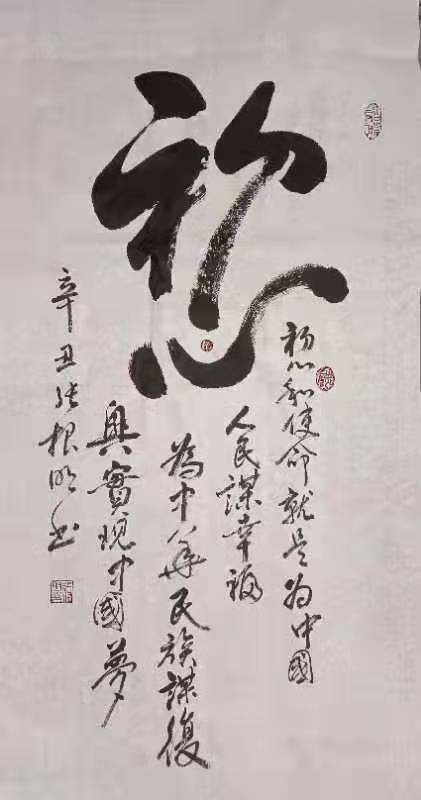 初心
初心和使命就是为中国
人民謀幸福
為中華民族謀復
興實現中國夢
辛丑張根明书